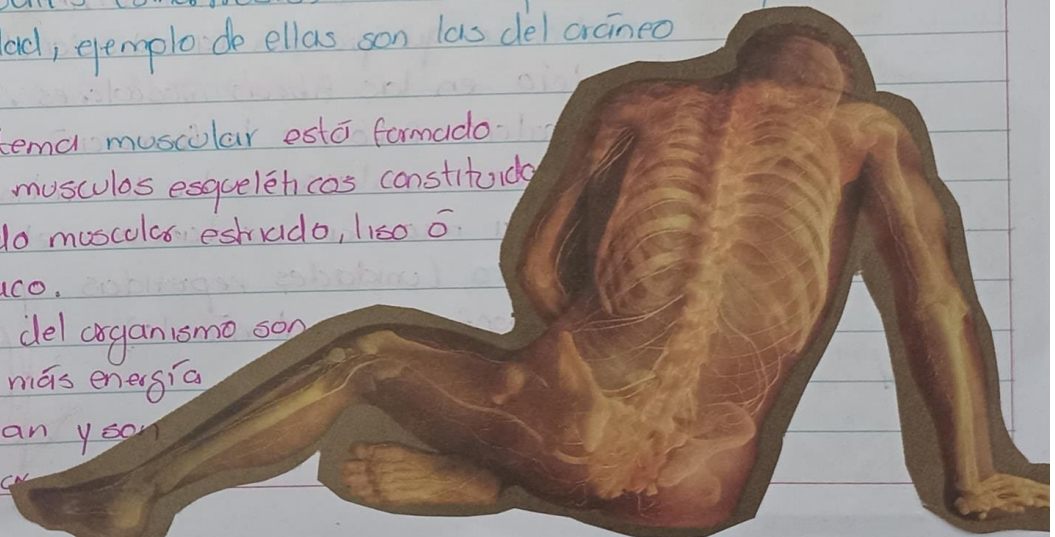 lad, ejemplo de ellas son las del cráneo
tema muscular está formado
musculos esqueléticos constituido
do muscular estriado, liso ó
aco.
del organismo son
más energía
an y son